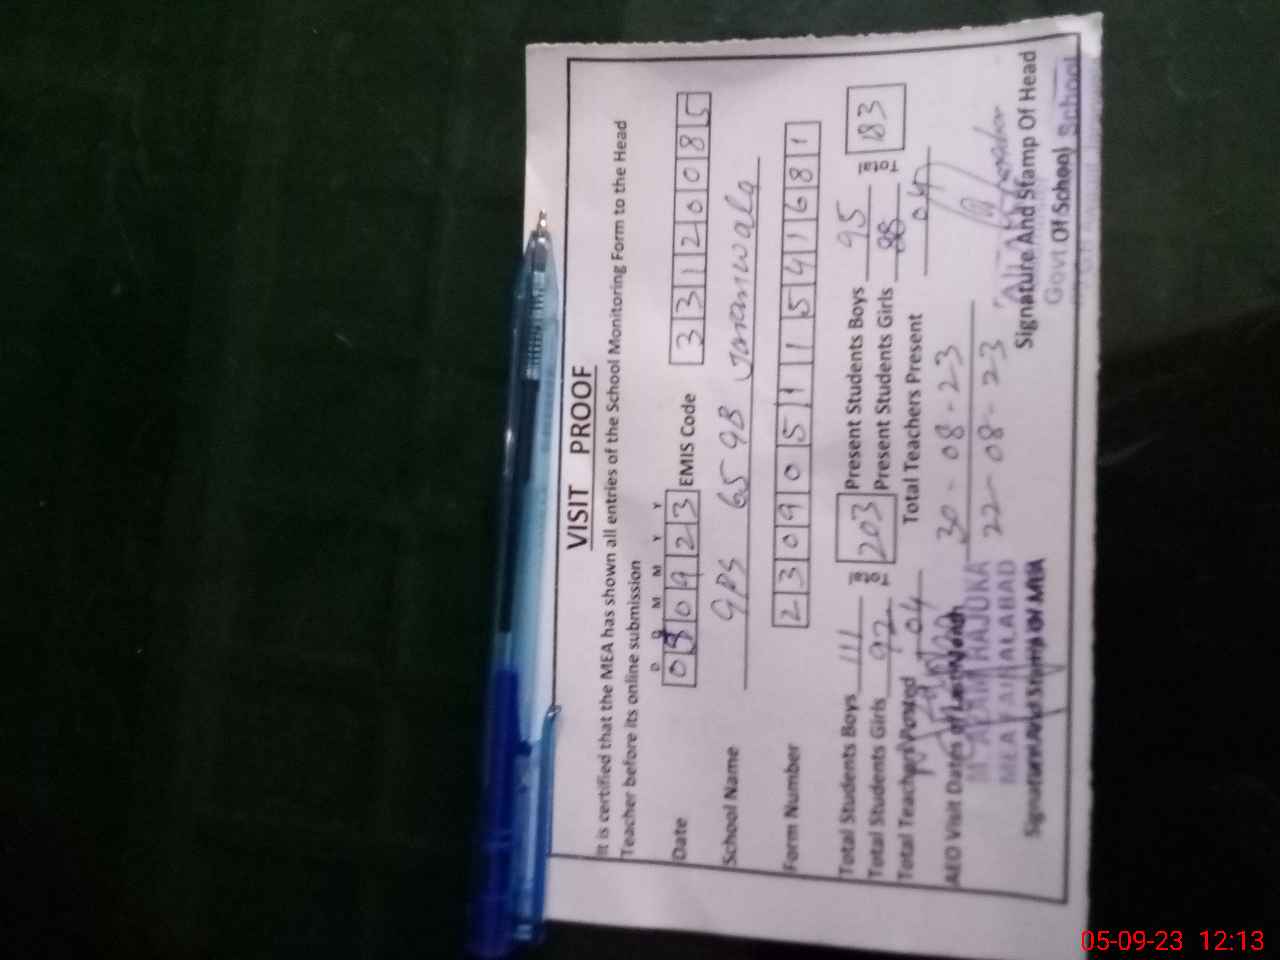 VISIT PROOF
It is certified that the MEA has shown all entries of the School Monitoring Form to the Head
Teacher before its online submission
D D M M Y Y
Date 050923 EMIS Code 33120085
School Name GPS 65 GB Jaranwala
Form Number 23090511541681
Total Students Boys 111 Total 203 Present Students Boys 95 Total 183
Total Students Girls 92 Present Students Girls 88
Total Teachers Posted 04 Total Teachers Present 04
AEO Visit Dates of Last Month 30-08-23
22-08-23
MEA FAISALABAD
Signature And Stamp Of MEA
Signature And Stamp Of Head
Of School
Govt School
05-09-23 12:13